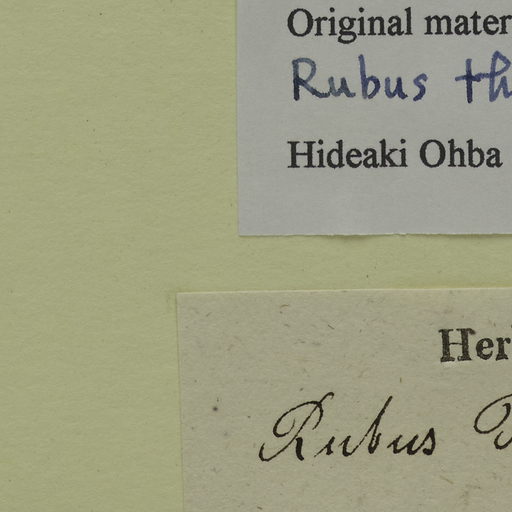 Original mater
Rubus th
Hideaki Ohba
Her
Rubus